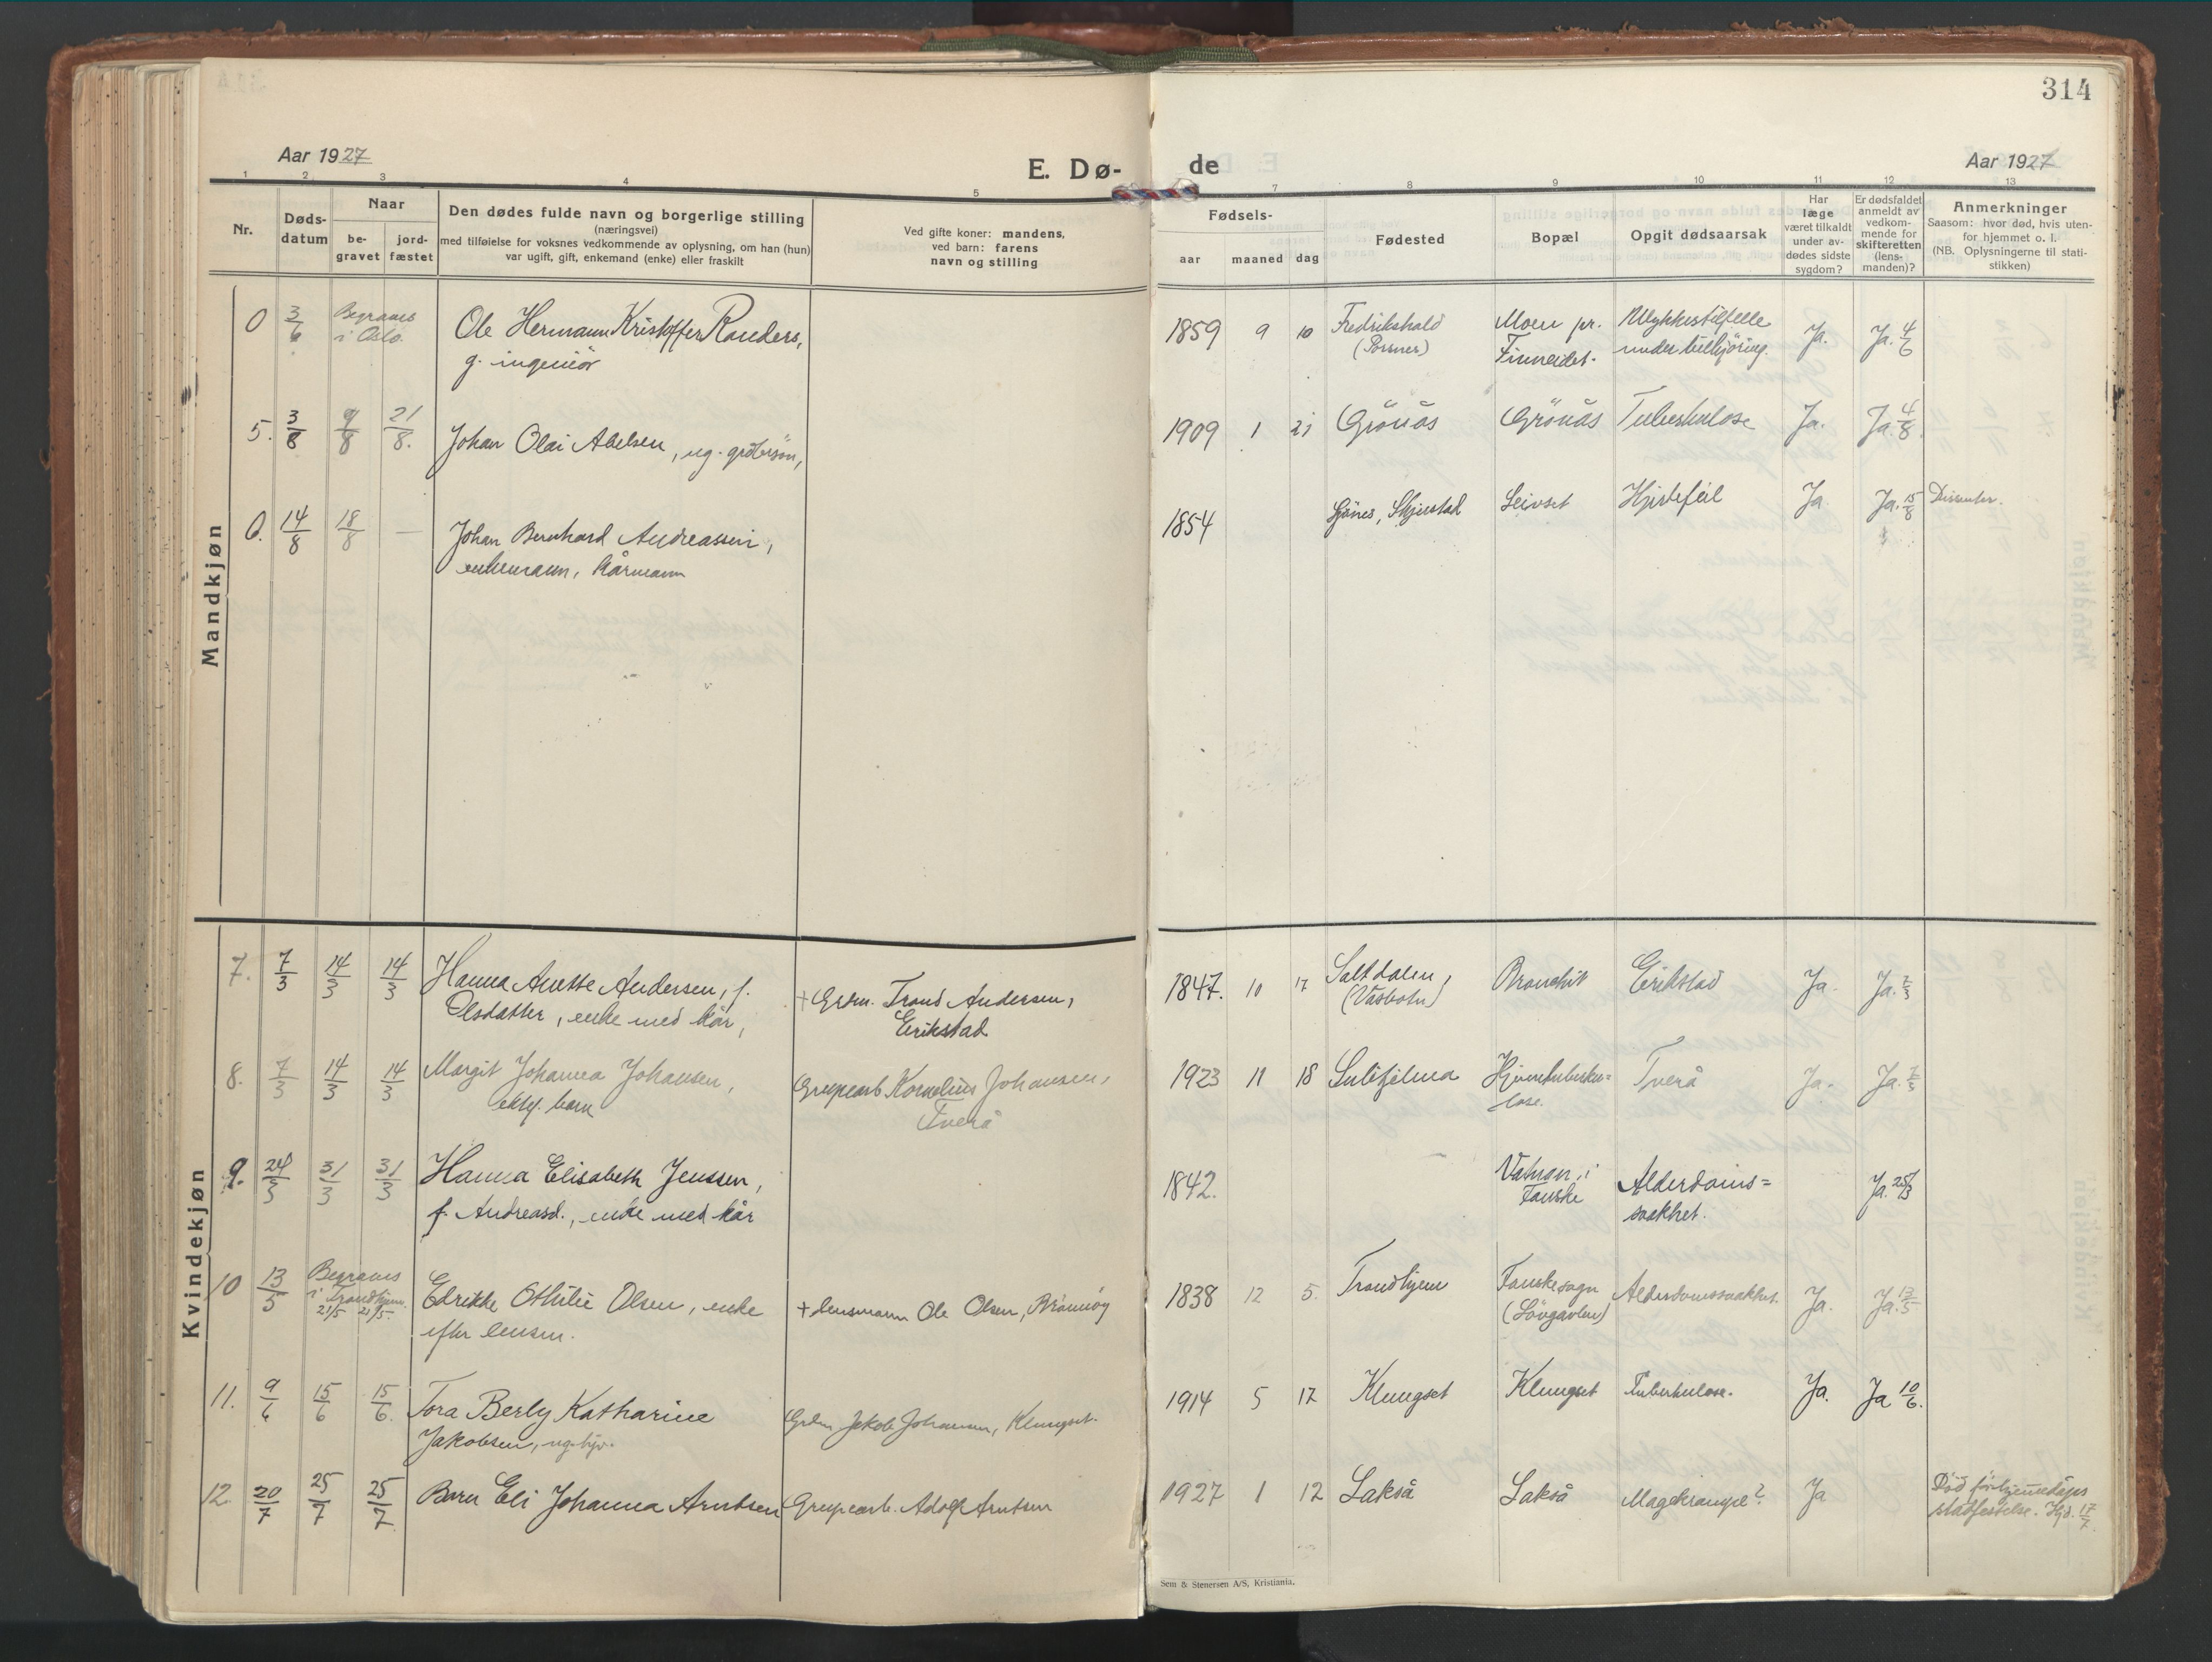 314
Aar 1927
E. Dø-
de
Aar 1927
1 2 3 4 5 7 8 9 10 11 12 13
Nr.
Døds-
datum
Naar
be-
gravet
jord-
fæstet
Den dødes fulde navn og borgerlige stilling
(næringsvei)
med tilføielse for voksnes vedkommende av oplysning, om han (hun)
var ugift, gift, enkemand (enke) eller fraskilt
Ved gifte koner: mandens,
ved barn: farens
navn og stilling
Fødsels-
aar maaned dag
Fødested
Bopæl
Opgit dødsaarsak
Har
læge
været tilkaldt
under av-
dødes sidste
sygdom?
Er dødsfaldet
anmeldt av
vedkom-
mende for
skifteretten
(lens-
manden)?
Anmerkninger
Saasom: hvor død, hvis uten-
for hjemmet o. l.
(NB. Oplysningerne til stati-
stikken)
Mandkjøn
0 3/6 Begraves Ole Hermann Kristoffer Randers, 1859 9 10 Fredrikshald Moen pr. Ulykkestilfelle Ja. Ja. 4/6
i Oslo. g. ingeniør Finneidet. under bilkjøring.
5. 3/8 9/8 21/8. Johan Olai Abelsen, ug. 1909 1 21 Grönås Grönås Tuberkulose Ja. Ja. 4/8.
6. 14/8 18/8 — Johan Bernhard Andreassen, 1854 Skjerstad Leivset Hjertefeil Ja. Ja. 15/8 Dissenter.
enkemann, kårmann
Kvindekjøn
7. 7/3 14/3 14/3 Hanna Anette Andersen, f. + Grdm. Trond Andersen, 1847. 10 17 Saltdalen, Bronchit Erikstad Ja. Ja. 7/3
Olsdatter, enke med kår, Erikstad (Vasbotn)
8. 7/3 14/3 14/3 Margit Johanna Johansen, Grupearb Kornelius Johansen, 1923 11 18 Sulitjelma Hjernetuberku= Tverå Ja. Ja. 7/3
ektef. barn Tverå lose.
9. 24/3 31/3 31/3 Hanna Elisabeth Jenssen, 1842. Vatnan, i Alderdoms= Ja. 25/3
f. Andreasd., enke med kår Fauske svakhet.
10 13/5 Begraves Edrikke Othilie Olsen, enke + lensmann Ole Olsen, Brönnöy 1838 12 5. Trondhjem Fauske sogn Alderdomssvakhet. Ja. Ja. 13/5
i Trondhjem efter lensm. (Lövgavlen)
21/5 21/5.
11. 9/6 15/6 15/6. Tora Berly Katharine Grdm Jakob Johansen, Klungset. 1914 5 17 Klungset Klungset Tuberkulose. Ja. Ja 10/6.
Jakobsen, ug.
12. 20/7 25/7 25/7. Barn Eli Johanna Arntsen Grupearb. Adolf Arntsen 1927 1 12 Lakså Lakså Magekrampe? Ja Död för hjemmedåps
stadfestelse. Hjd. 17/7.
Sem & Stenersen A/S, Kristiania.